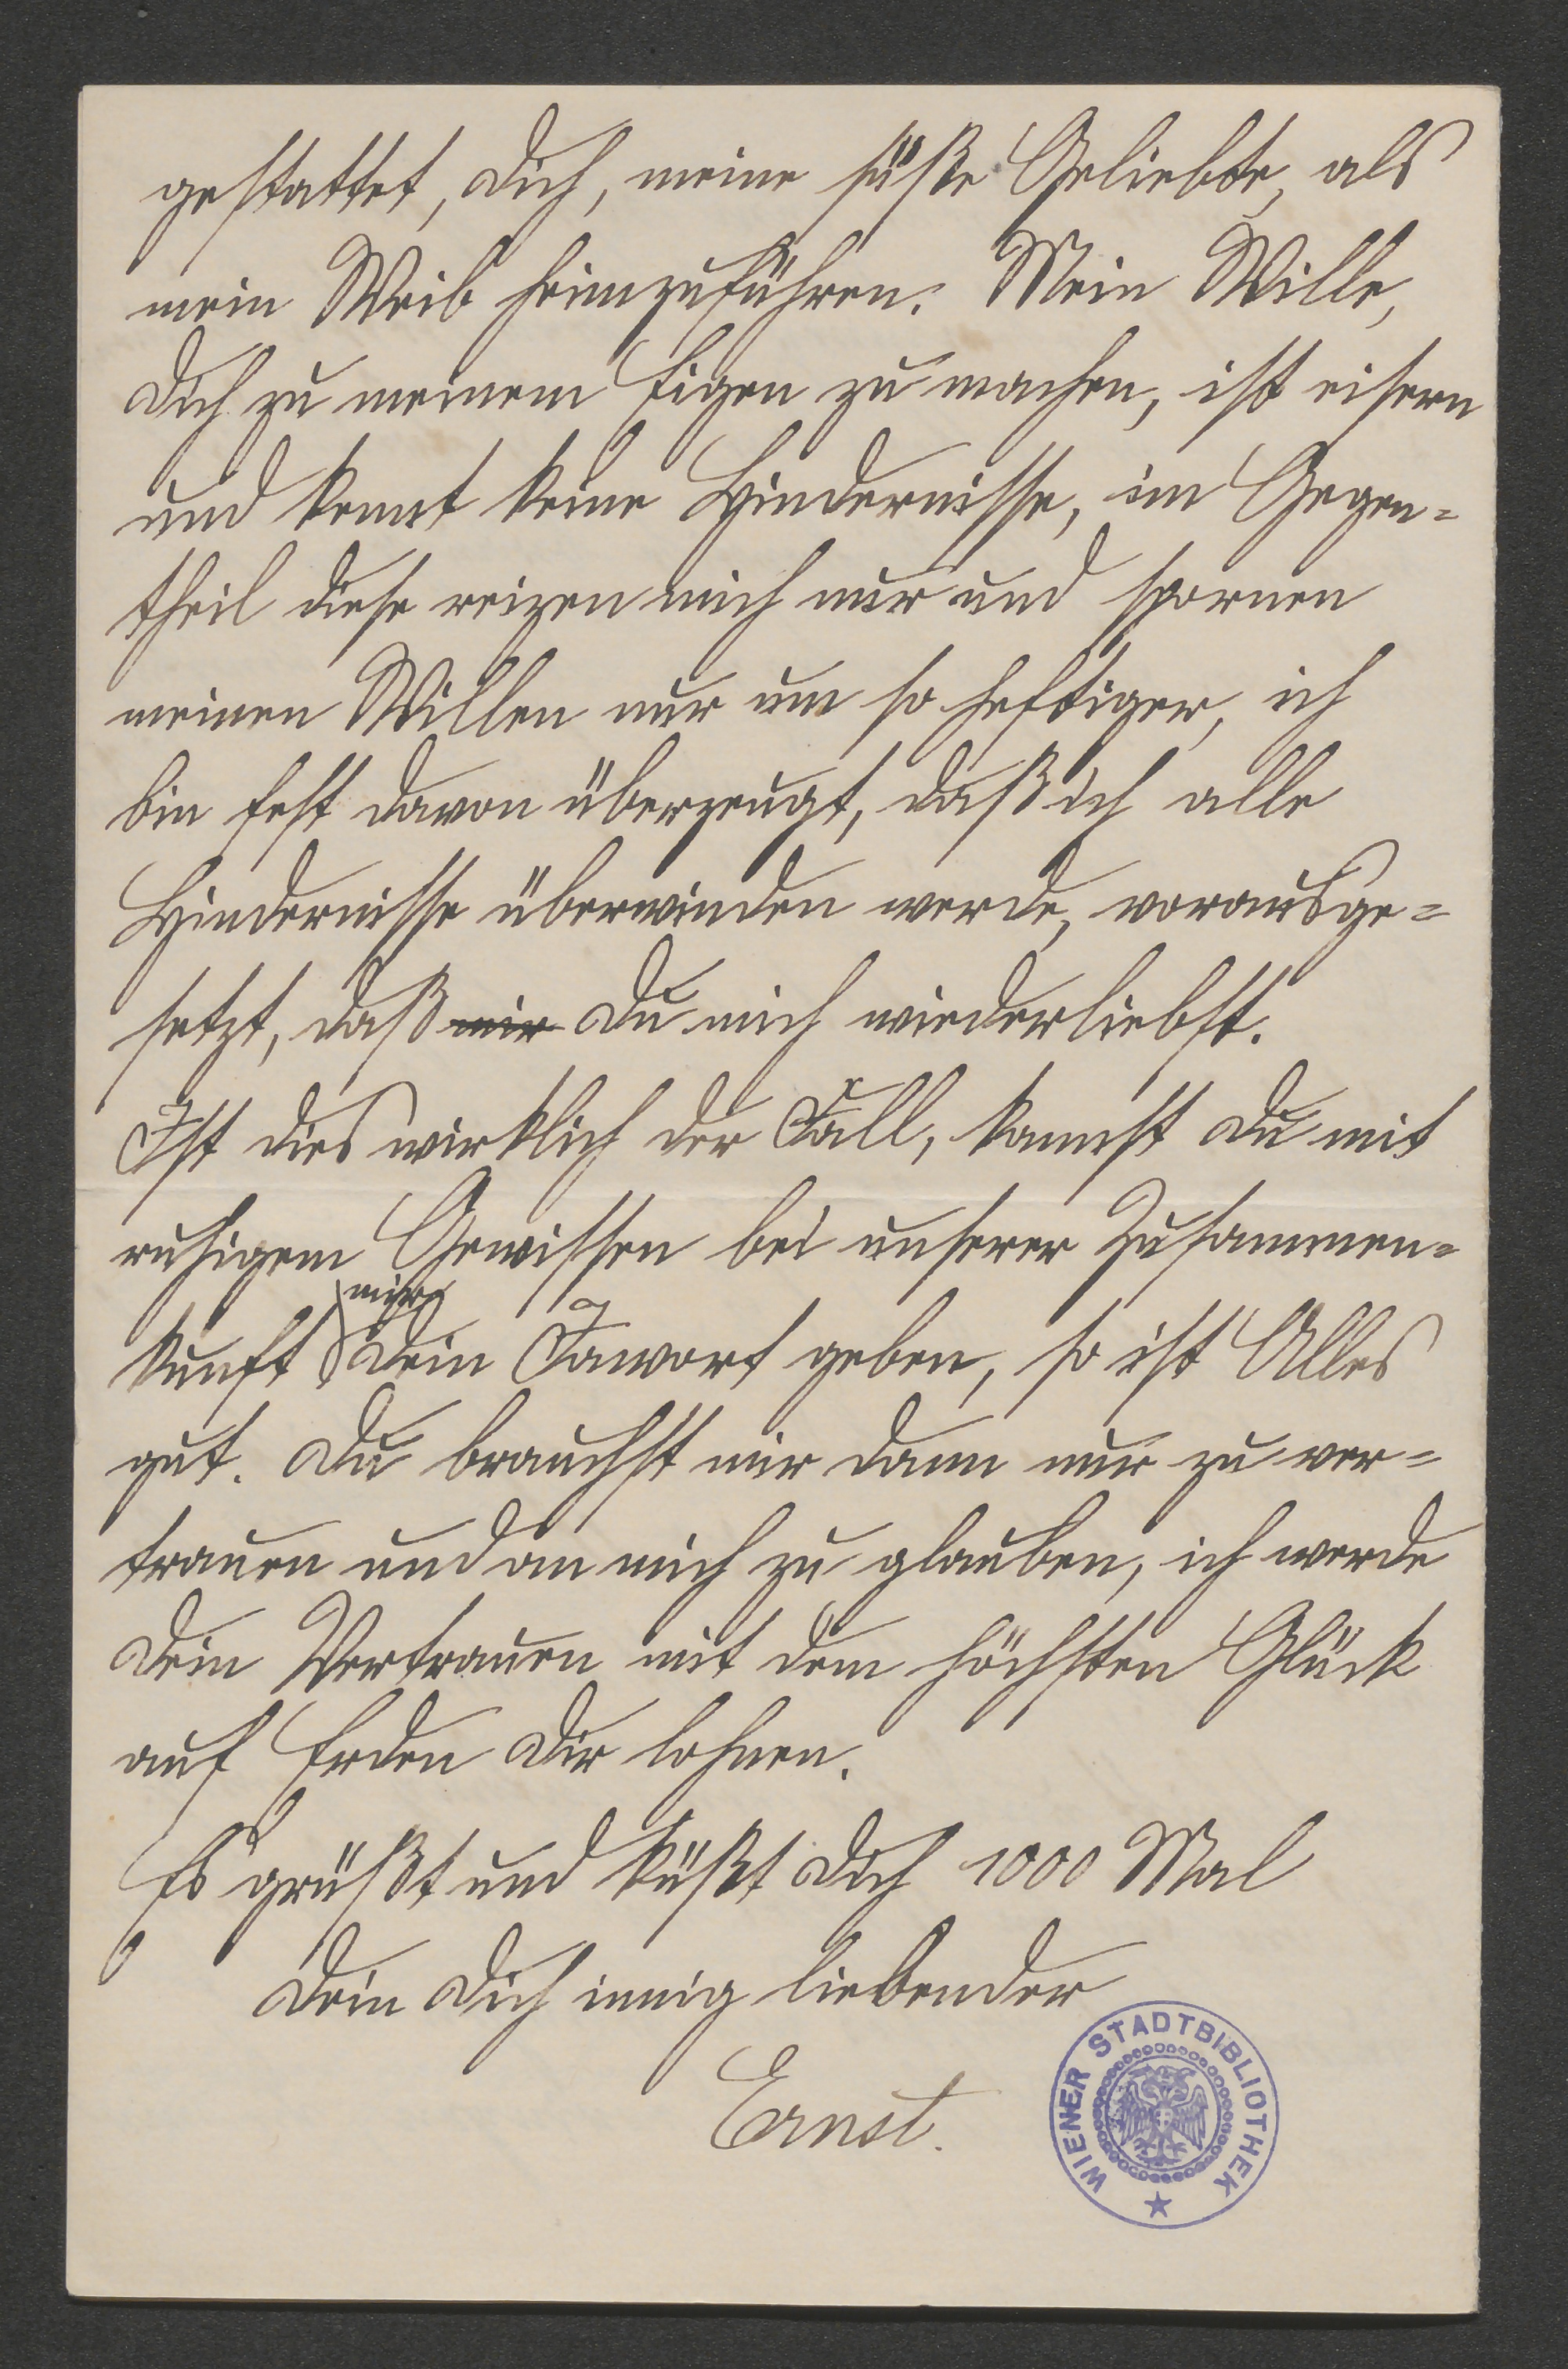 gestattet, Dich, meine süße Geliebte, als
mein Weib heimzuführen. Mein Wille,
Dich zu meinem Eigen zu machen, ist eisern
und kennt keine Hindernisse, im Gegen=
theil diese reizen mich nur und spornen
meinen Willen nur um so heftiger, ich
bin fest davon überzeugt, daß ich alle
Hindernisse überwinden werde, vorausge=
setzt, daß mir Du mich wiederliebst.
Ist dies wirklich der Fall, kannst Du mit
ruhigem Gewissen bei unserer Zusammen=
mir
kunft Dein Jawort geben, so ist Alles
gut. Du brauchst mir dann nur zu ver=
trauen und an mich zu glauben, ich werde
Dein Vertrauen mit dem höchsten Glück
auf Erden Dir lohnen.
Es grüßt und küßt Dich 1000 Mal
Dein Dich innig liebender
Ernst.
WIENER STADTBIBLIOTHEK